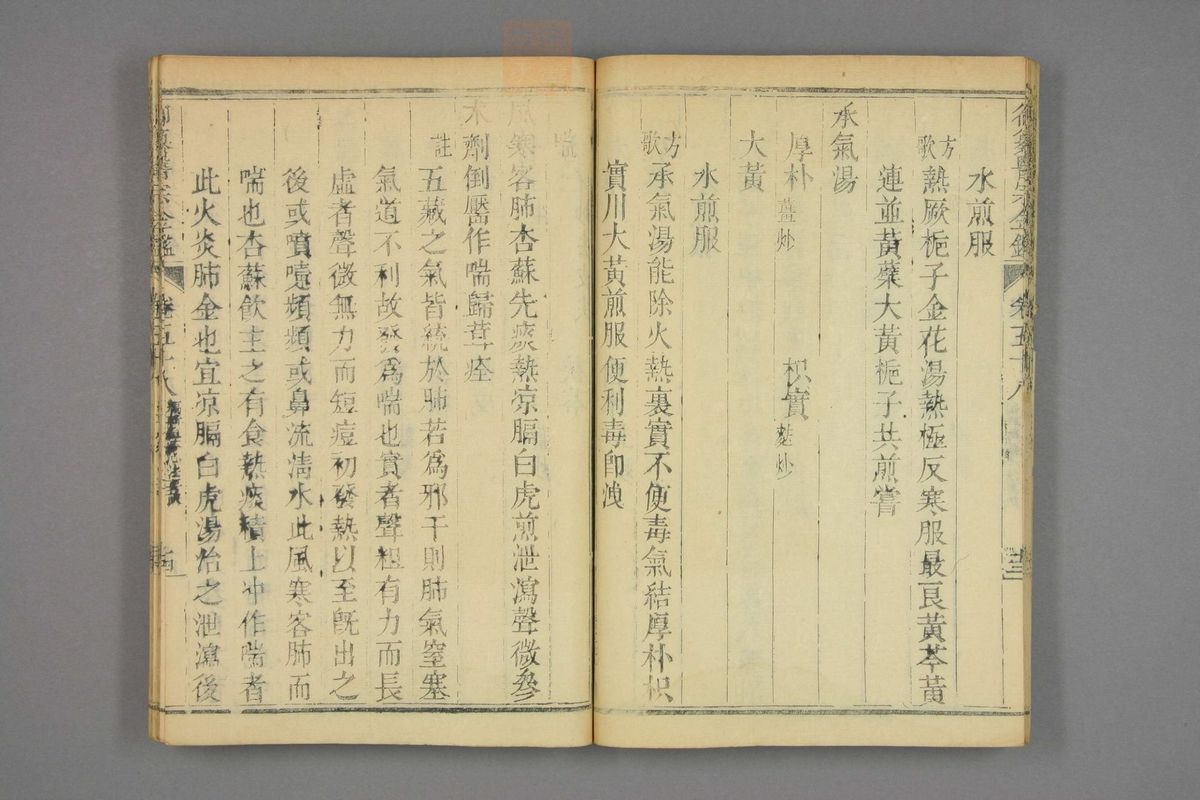 水煎服
方歌 熱厥梔子金花湯熱極反寒服最良黃芩黃
連並黃蘗大黃梔子共煎嘗
承氣湯
厚朴薑炒 枳實麩炒
大黃
水煎服
方歌 承氣湯能除火熱裏實不便毒氣結厚朴枳
實川大黃煎服便利毒即洩
喘
風寒客肺杏蘇先痰熱凉膈白虎煎泄瀉聲微參
朮劑倒靨作喘歸苓痊
註 五藏之氣皆統於肺若爲邪干則肺氣窒塞
氣道不利故發爲喘也實者聲粗有力而長
虛者聲微無力而短痘初發熱以至旣出之
後或噴嚏頻頻或鼻流淸水此風寒客肺而
喘也杏蘇飲主之有食熱痰積上冲作喘者
此火炎肺金也宜凉膈白虎湯治之泄瀉後
御纂醫宗金鑑 卷五十八